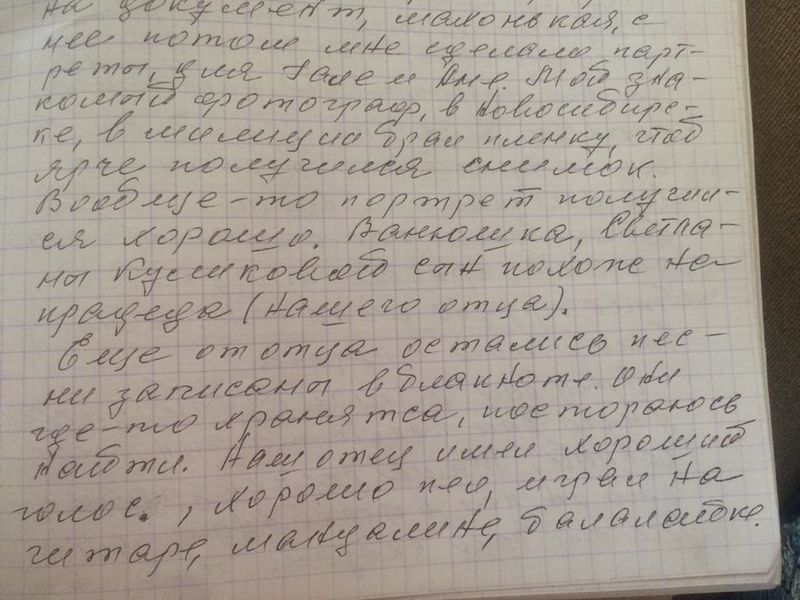 на документ, малонькая, с
нее потом мне сделали парт-
реты, для Гали и Ани. Мой зна-
комый фотограф, в Новосибирс-
ке, в милиции брал пленку, чтоб
ярче получился снимок.
Вообще-то портрет получил-
ся хорошо. Ванюшка, Светла-
ны Куликовой сын похож на
прадеда (нашего отца).
Еще от отца остались пес-
ни записаны в блакноте. Они
где-то хранятса, постораюсь
найти. Наш отец имел хороший
голос., хорошо пел, играл на
гитаре, мандалине, балалайке.